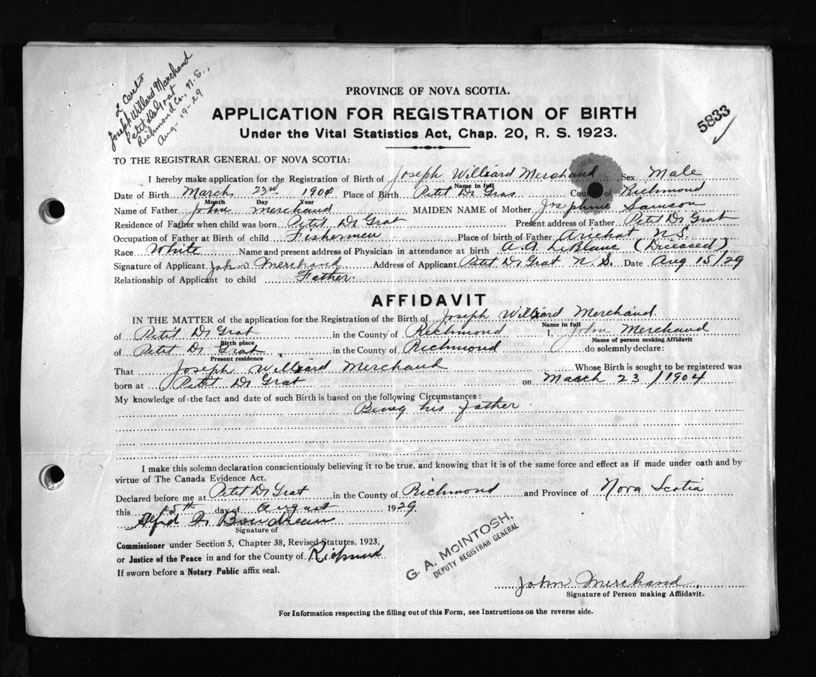 2 Cert
Joseph Willard Marchand
Petit De Grat
Richmond Co., N.S.,
Aug-19-29
PROVINCE OF NOVA SCOTIA.
APPLICATION FOR REGISTRATION OF BIRTH
5833
Under the Vital Statistics Act, Chap. 20, R. S. 1923.
TO THE REGISTRAR GENERAL OF NOVA SCOTIA:
I hereby make application for the Registration of Birth of Joseph Williard Merchand Sex Male
Name in full
Date of Birth March 23rd 1904 Place of Birth Petit De Gras County of Richmond
Month Day Year
Name of Father John Merchand MAIDEN NAME of Mother Josephine Samson
Residence of Father when child was born Petit De Grat Present address of Father Petit De Grat
Occupation of Father at Birth of child Fishermen Place of birth of Father Arichat N.S.
Race White Name and present address of Physician in attendance at birth LeBlanc (Deceased)
Signature of Applicant John Merchand Address of Applicant Petit De Grat N.S. Date Aug 15/29
Relationship of Applicant to child Father.
AFFIDAVIT
IN THE MATTER of the application for the Registration of the Birth of Joseph Williard Merchand.
Name in full
of Petit De Grat in the County of Richmond I, John Merchand
Birth place Name of person making Affidavit
of Petit De Grat, in the County of Richmond do solemnly declare:
Present residence
That Joseph Williard Merchand Whose Birth is sought to be registered was
born at Petit De Grat on March 23/1904
My knowledge of the fact and date of such Birth is based on the following Circumstances:
Being his father.
I make this solemn declaration conscientiously believing it to be true, and knowing that it is of the same force and effect as if made under oath and by
virtue of The Canada Evidence Act.
Declared before me at Petit De Grat in the County of Richmond and Province of Nova Scotia
this 15th day of August 1929
Boudreau
Signature of
Commissioner under Section 5, Chapter 38, Revised Statutes, 1923,
or Justice of the Peace in and for the County of Richmond
If sworn before a Notary Public affix seal.
G. A. McINTOSH,
DEPUTY REGISTRAR GENERAL
John Merchand.
Signature of Person making Affidavit.
For Information respecting the filling out of this Form, see Instructions on the reverse side.